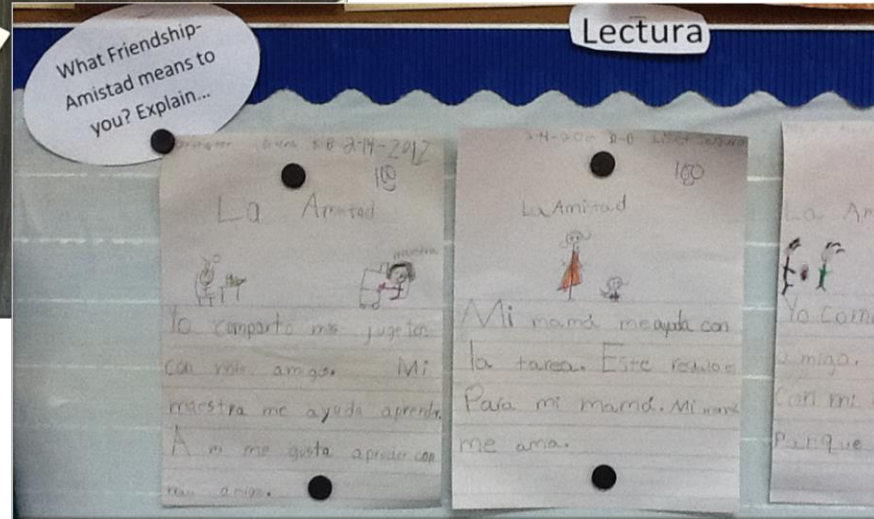 What Friendship-
Amistad means to
you? Explain...
Lectura
2-14-2012
100
La Amistad
maestra
Yo comparto mis jugetes
con mis amigos. Mi
maestra me ayuda aprender.
A mi me gusta aprender con
mis amigos.
100
La Amistad
Mi mamá me ayuda con
la tarea. Este
Para mi mamá. Mi mamá
me ama.
La Am
Yo Com
amiga.
Con mi
Parque